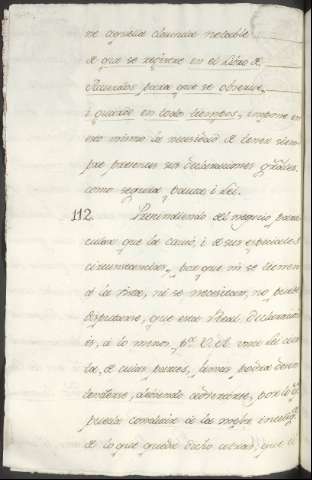 ne aquella clausula notable
de que se registre en el Libro de
Acuerdos para que se observe,
i guarde en todos tiempos, impone en
esto mismo la necesidad de tener siem-
pre presentes sus declaraciones grãles
como segura pauta i Lei.
112. Prescindiendo del negocio parti-
cular que la causó, i de sus especiales
circunstancias, porque ni se tienen
a la vista, ni se necesitan, no puede
disputarse, que esta Real declaracion
es, a lo menos, pª V.A. una lei cier-
ta, de cuias partes, jamas podra desen-
tenderse, debiendo advertirse, por lo q̃
pueda conducir a la mejor intelig.ª
de lo que queda dicho arriba, que el